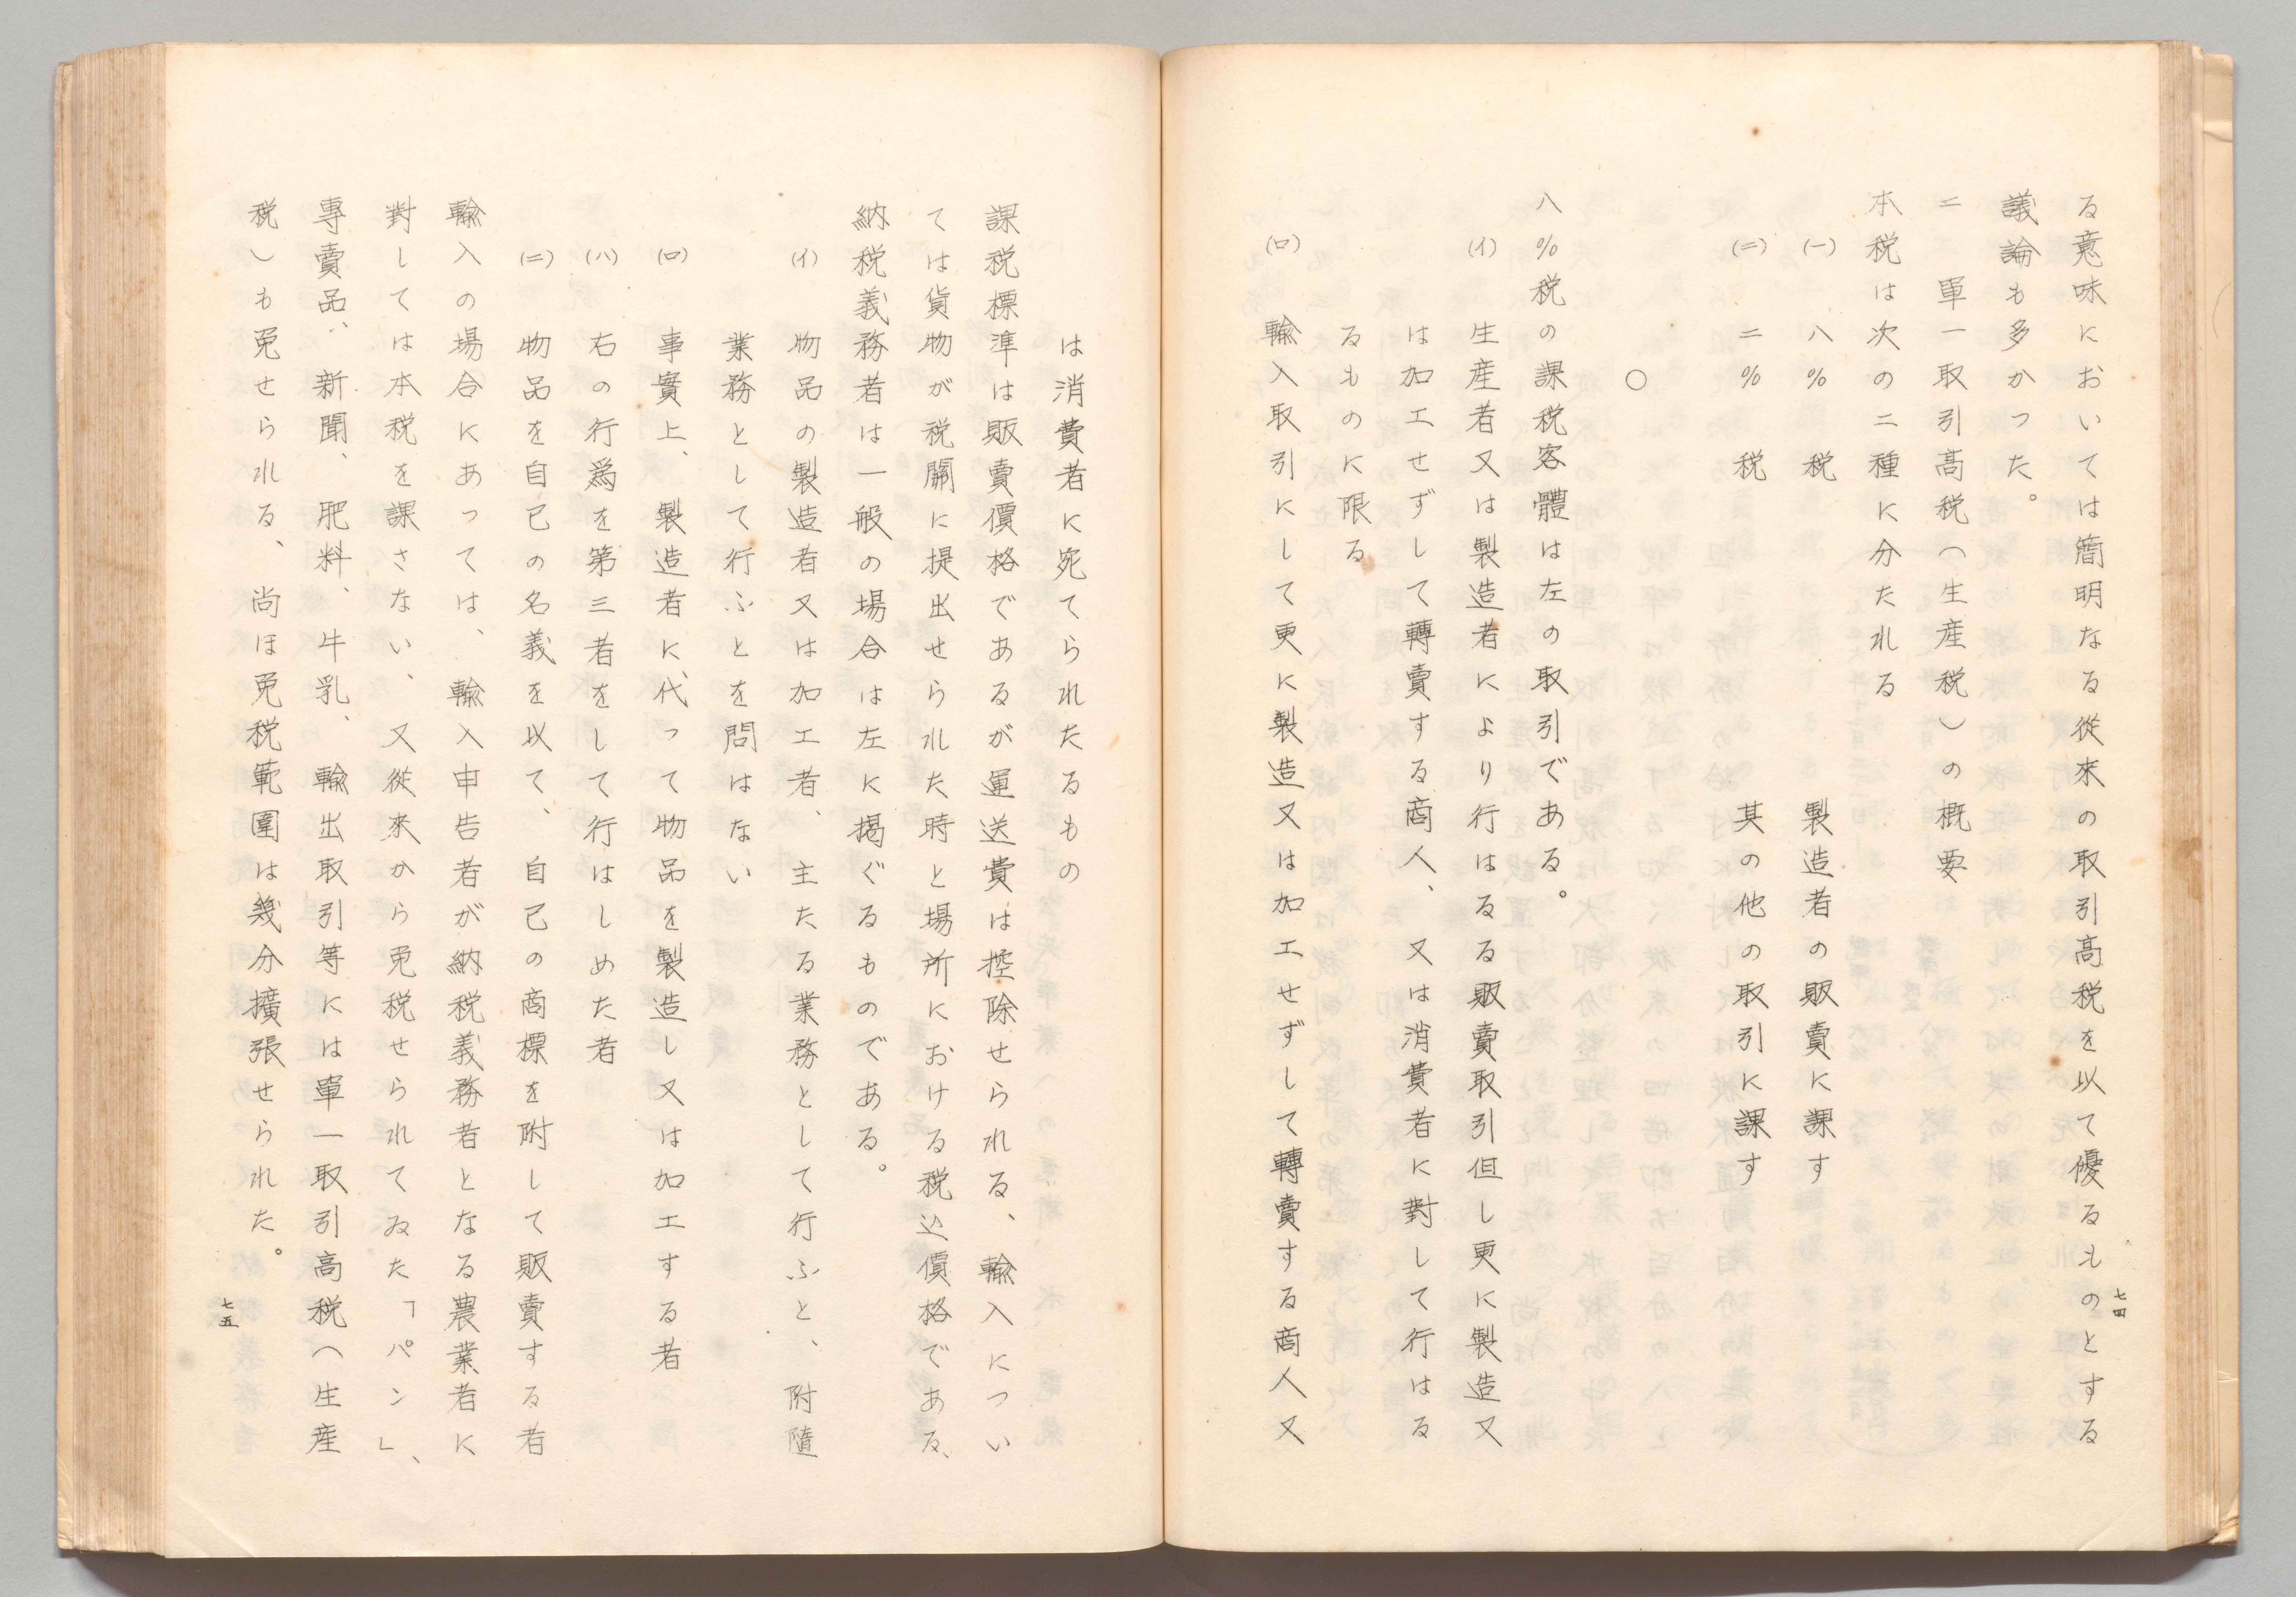 る意味においては簡明なる從來の取引高税を以て優るものとする
議論も多かつた。
二　單一取引高税（生産税）の概要
本税は次の二種に分たれる
(一)　八％　税　製造者の販賣に課す
(二)　二％　税　其の他の取引に課す
○
八％税の課税客體は左の取引である。
(イ)　生産者又は製造者により行はるる販賣取引但し更に製造又
は加工せずして轉賣する商人、又は消費者に對して行はる
るものに限る
(ロ)　輸入取引にして更に製造又は加工せずして轉賣する商人又
七四
は消費者に宛てられたるもの
課税標準は販賣價格であるが運送費は控除せられる、輸入につい
ては貨物が税關に提出せられた時と場所における税込價格である、
納税義務者は一般の場合は左に揭ぐるものである。
(イ)　物品の製造者又は加工者、主たる業務として行ふと、附隨
業務として行ふとを問はない
(ロ)　事實上、製造者に代つて物品を製造し又は加工する者
(ハ)　右の行爲を第三者をして行はしめた者
(ニ)　物品を自己の名義を以て、自己の商標を附して販賣する者
輸入の場合にあつては、輸入申告者が納税義務者となる農業者に
對しては本税を課さない、又從來から免税せられてゐた「パン」、
專賣品、新聞、肥料、牛乳、輸出取引等には單一取引高税（生産
税）も免せられる、尚ほ免税範圍は幾分擴張せられた。
七五